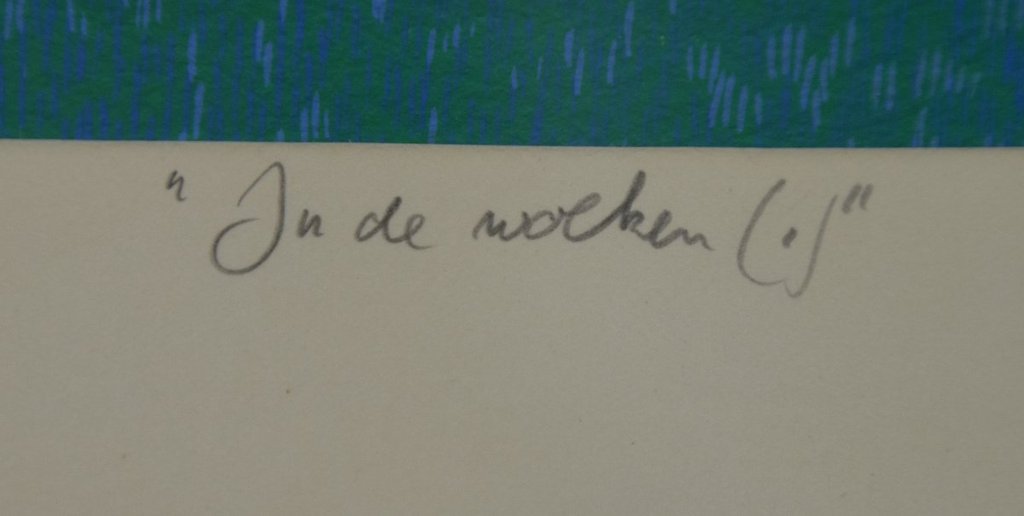 "In de wolken (.)"